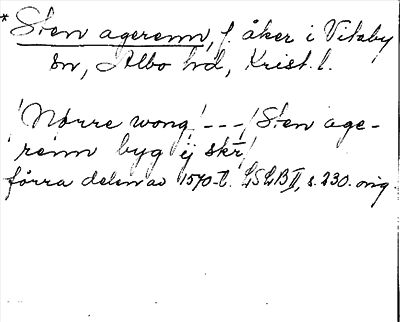 * Sten agerenn, f. åker i Vitaby
sn, Albo hd, Krist. l.
/Nørre wong/ - - - /Sten age-
renn byg ij skr/
förra delen av 1570-t. LSLB II, s. 230. orig.